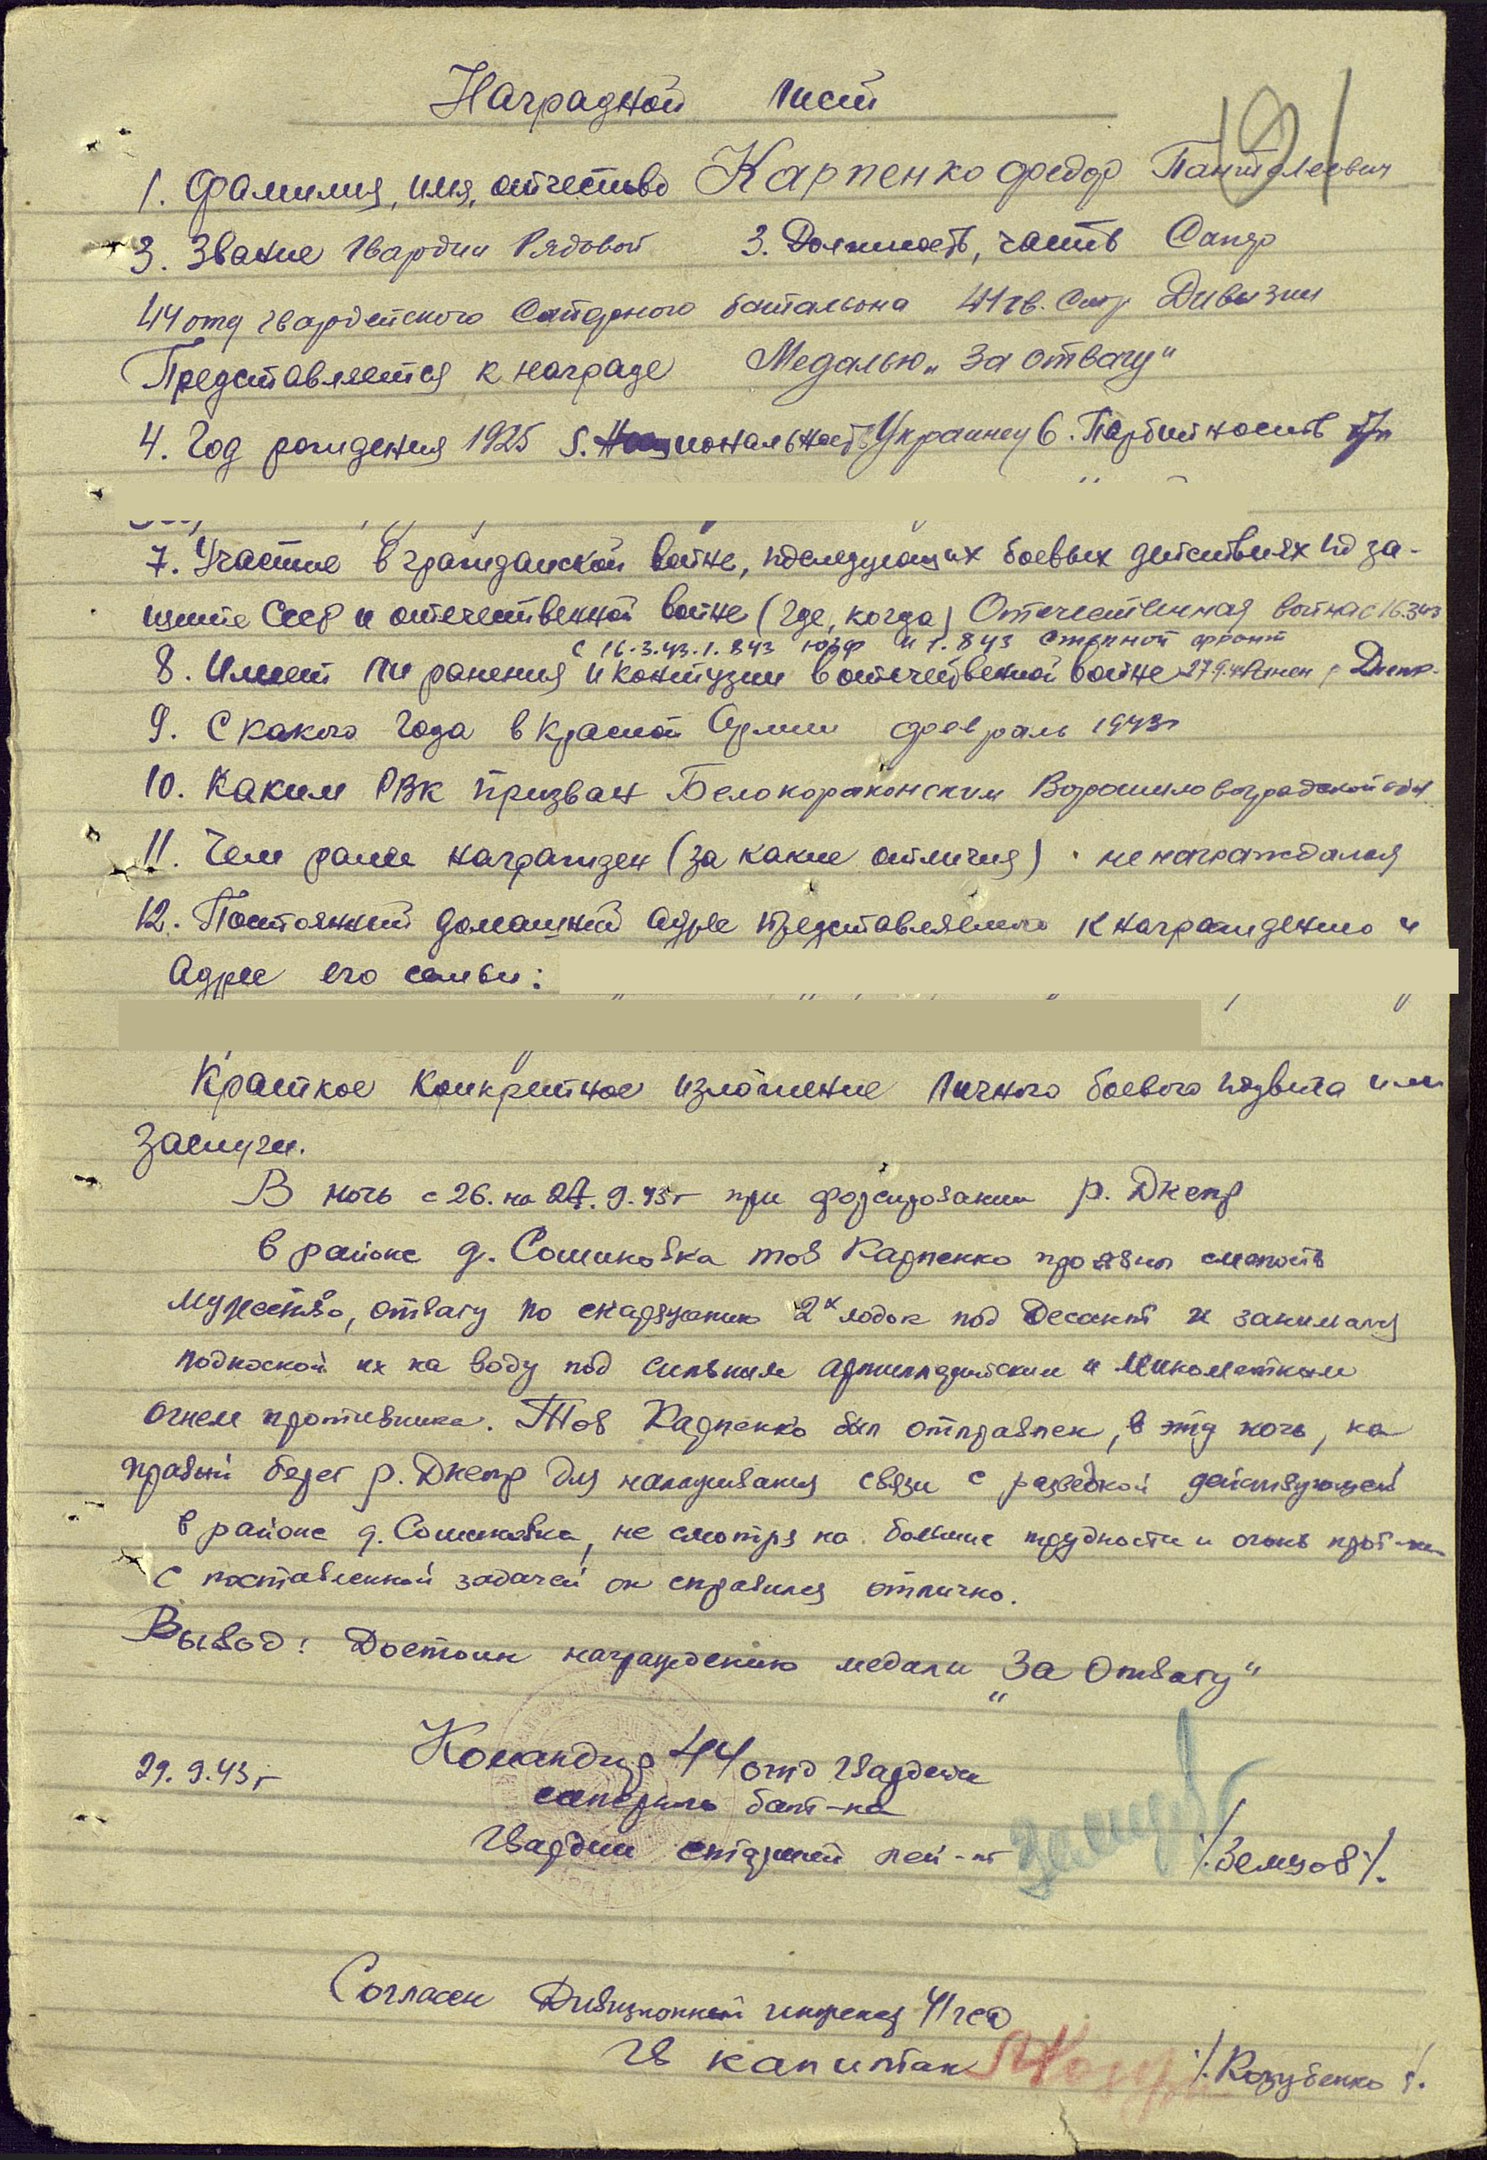 Наградной лист
191
1. Фамилия, имя, отчество Карпенко Федор Пантелеевич
3. Звание Гвардии Рядовой 3. Должность, часть Сапер
44 отд гвардейского Саперного батальона 41 гв. Стр Дивизии
Представляется к награде Медалью „За отвагу"
4. Год рождения 1925 5. Национальность Украинец 6. Партийность
7. Участие в гражданской войне, последующих боевых действиях по за-
щите СССР и отечественной войне (где, когда) Отечественная война с 16.3.43
с 16.3.43. 1.843 ЮЗФ и 1.843 Степной фронт
8. Имеет ли ранения и контузии в отечественной войне 27.9.43 р. Днепр.
9. С какого года в Красной Армии февраль 1943г
10. Каким РВК призван Белокоракинским Ворошиловоградской обл
11. Чем ранее награжден (за какие отличия) не награждался
12. Постоянный домашний адрес представляемого к награждению и
Адрес его семьи:
Краткое конкретное изложение личного боевого подвига или
заслуги.
В ночь с 26. на 27.9.43г при форсировании р. Днепр
в районе д. Сошиновка тов Карпенко проявил смелость
мужество, отвагу по снаряжению 2х лодок под десант и занимался
подноской их на воду под сильным артиллерийским и минометным
огнем противника. Тов Карпенко был отправлен, в эту ночь, на
правый берег р. Днепр для налаживания связи с разведкой действующей
в районе д. Сошиновка, не смотря на большие трудности и огонь прот-ка
с поставленной задачей он справился отлично.
Вывод: Достоин награждению медали „За Отвагу"
29.9.43г Командир 44 отд Гвардейск
саперного бат-на
Гвардии старший лей-нт Земцов /.Земцов/.
Согласен Дивизионный инженер 41 гсд
Гв капитан /.Козубенко/.